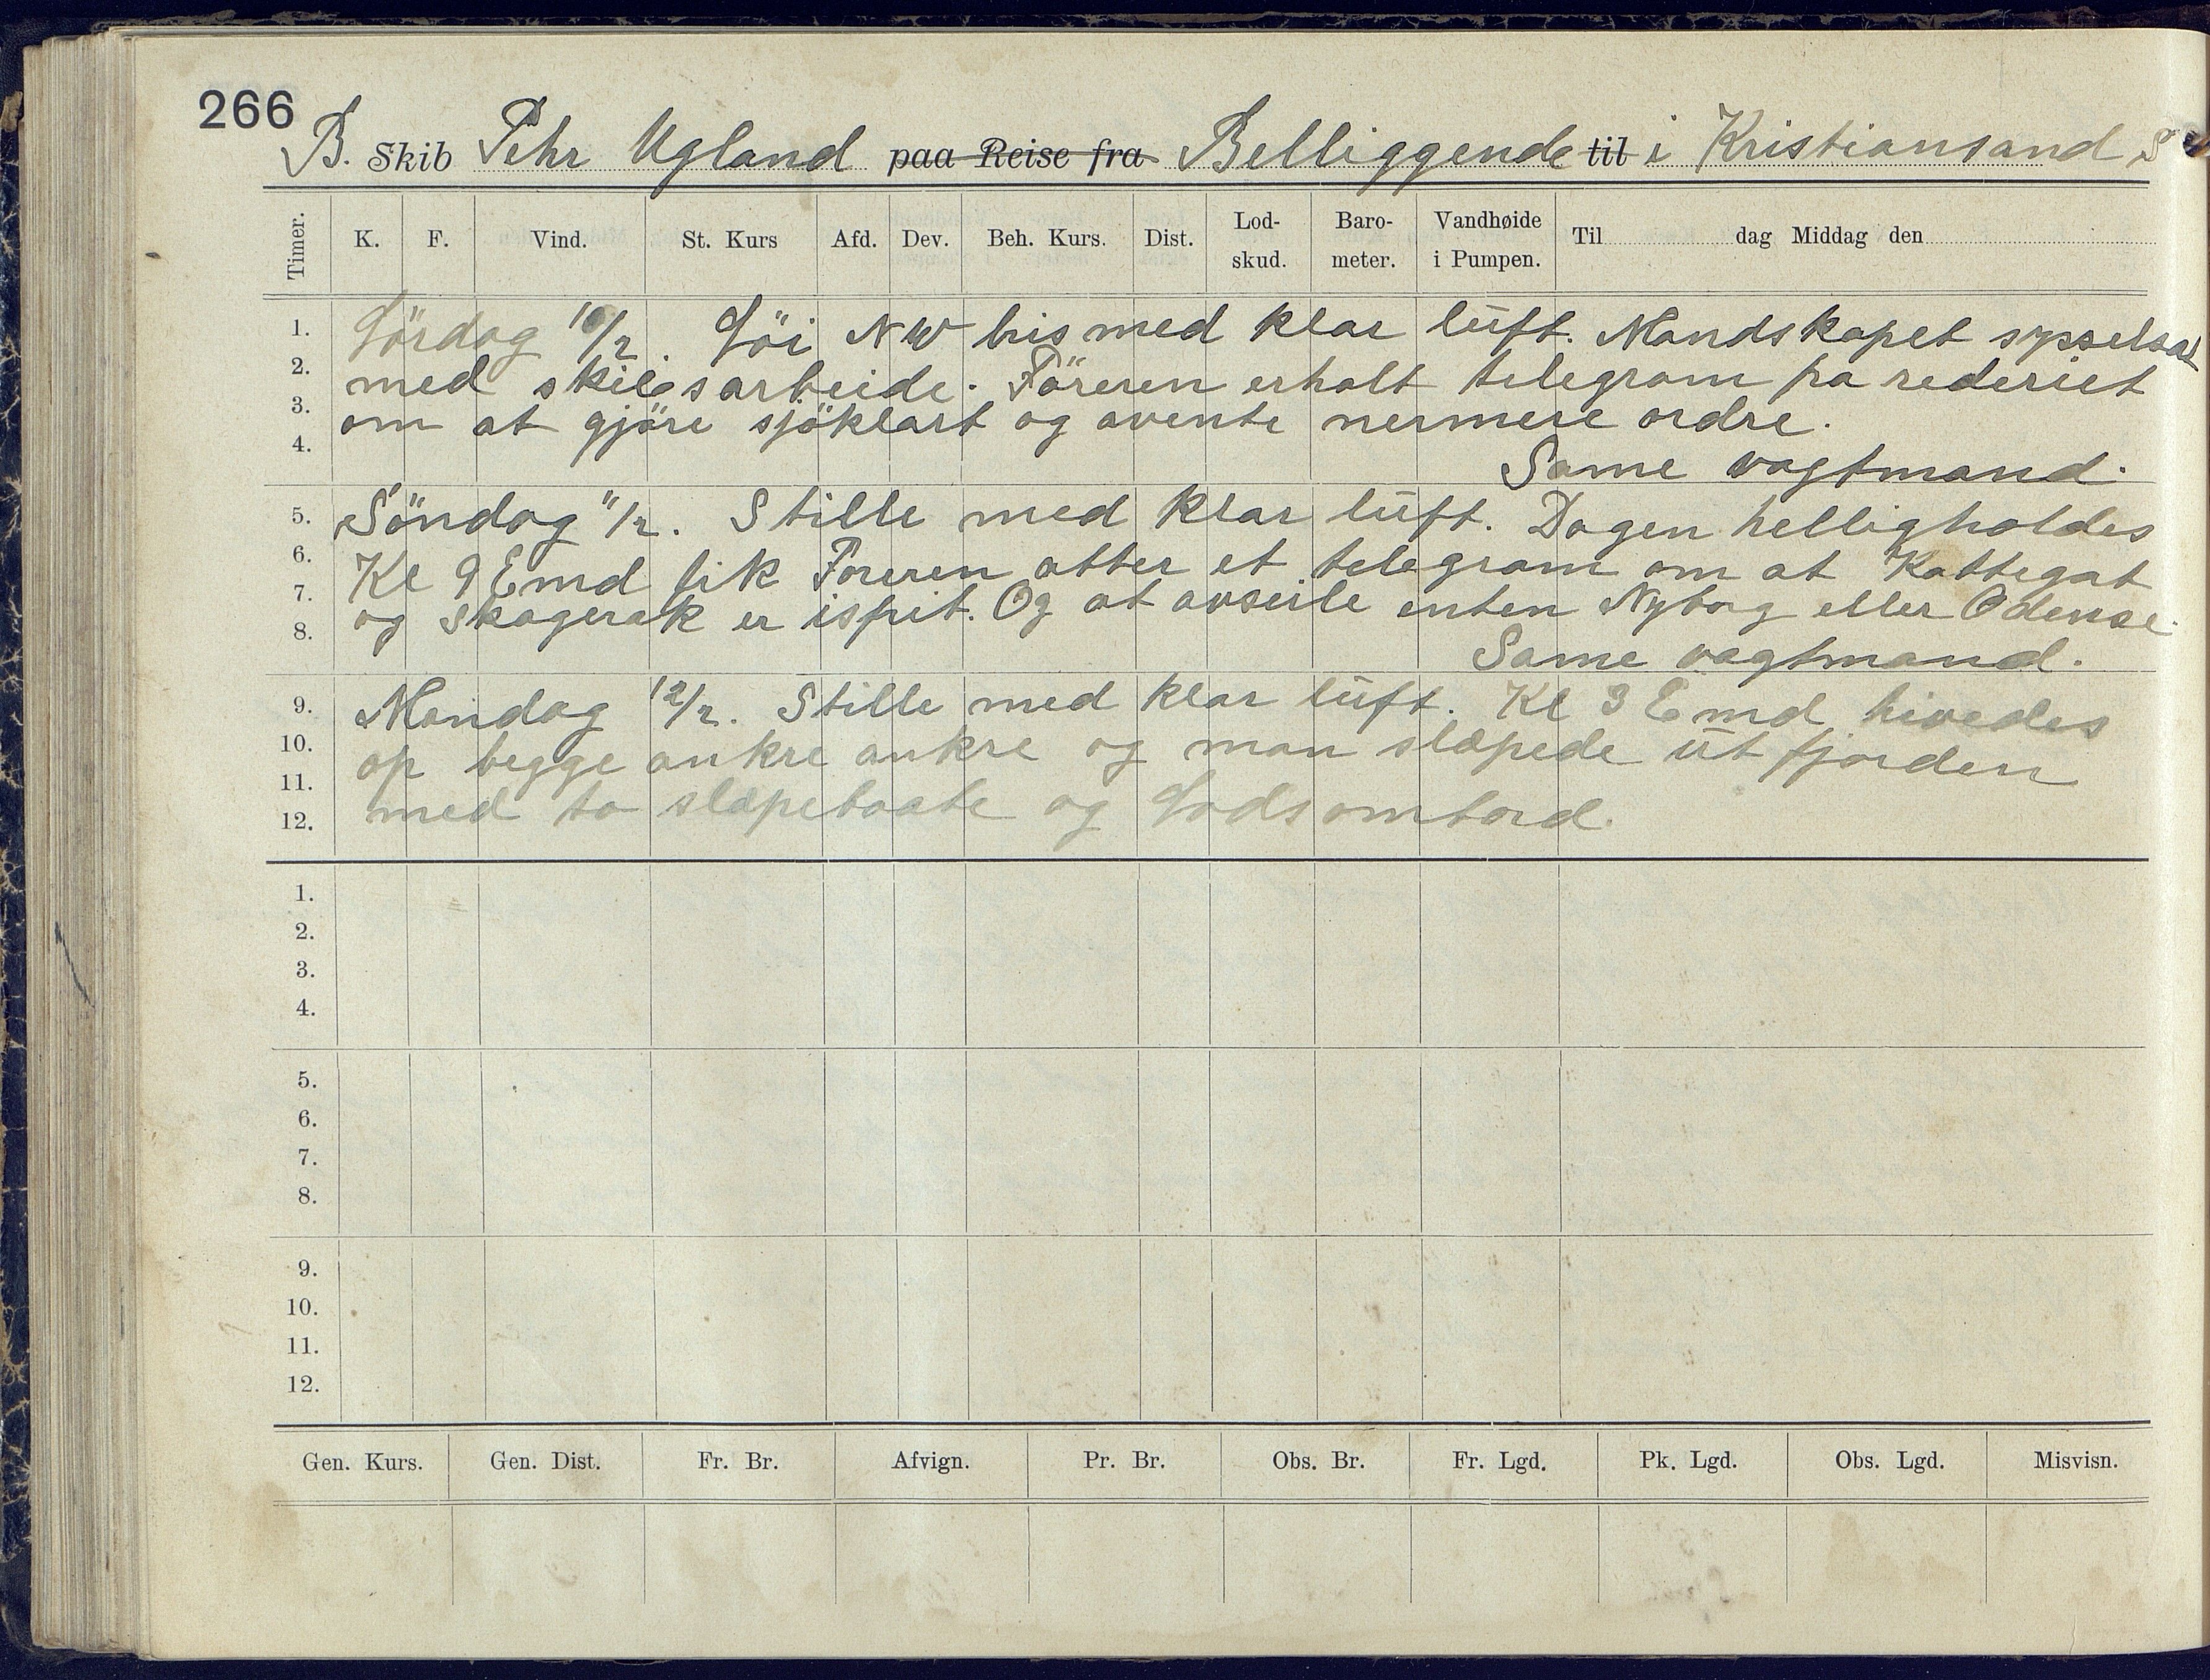 266
B. Skib Pehr Ugland paa Reise fra Belliggende til i Kristiansand S
Timer. K. F. Vind. St. Kurs Afd. Dev. Beh. Kurs. Dist. Lod-skud. Baro-meter. Vandhøide i Pumpen. Til dag Middag den
1. Lördag 10/2. Löi NW bris med klar luft. Mandskapet sysselsat
2. med skibsarbeide. Föreren erholt telegram fra rederiet
3. om at gjöre sjöklart og avente nermere ordre.
4. Same vagtmand.
5. Söndag 11/2. Stille med klar luft. Dagen helligholdes
6. Kl 9 Emd fik Föreren atter et telegram om at Kattegat
7. og Skagerak er isfrit. Og at avseile enten Nyborg eller Odense.
8. Same vagtmand.
9. Mandag 12/2. Stille med klar luft. Kl 3 Emd hivedes
10. op begge ankre ankre og man slæpede ut fjorden
11. med to slæpebaate og Lods ombord.
12.
1.
2.
3.
4.
5.
6.
7.
8.
9.
10.
11.
12.
Gen. Kurs. Gen. Dist. Fr. Br. Afvign. Pr. Br. Obs. Br. Fr. Lgd. Pk. Lgd. Obs. Lgd. Misvisn.